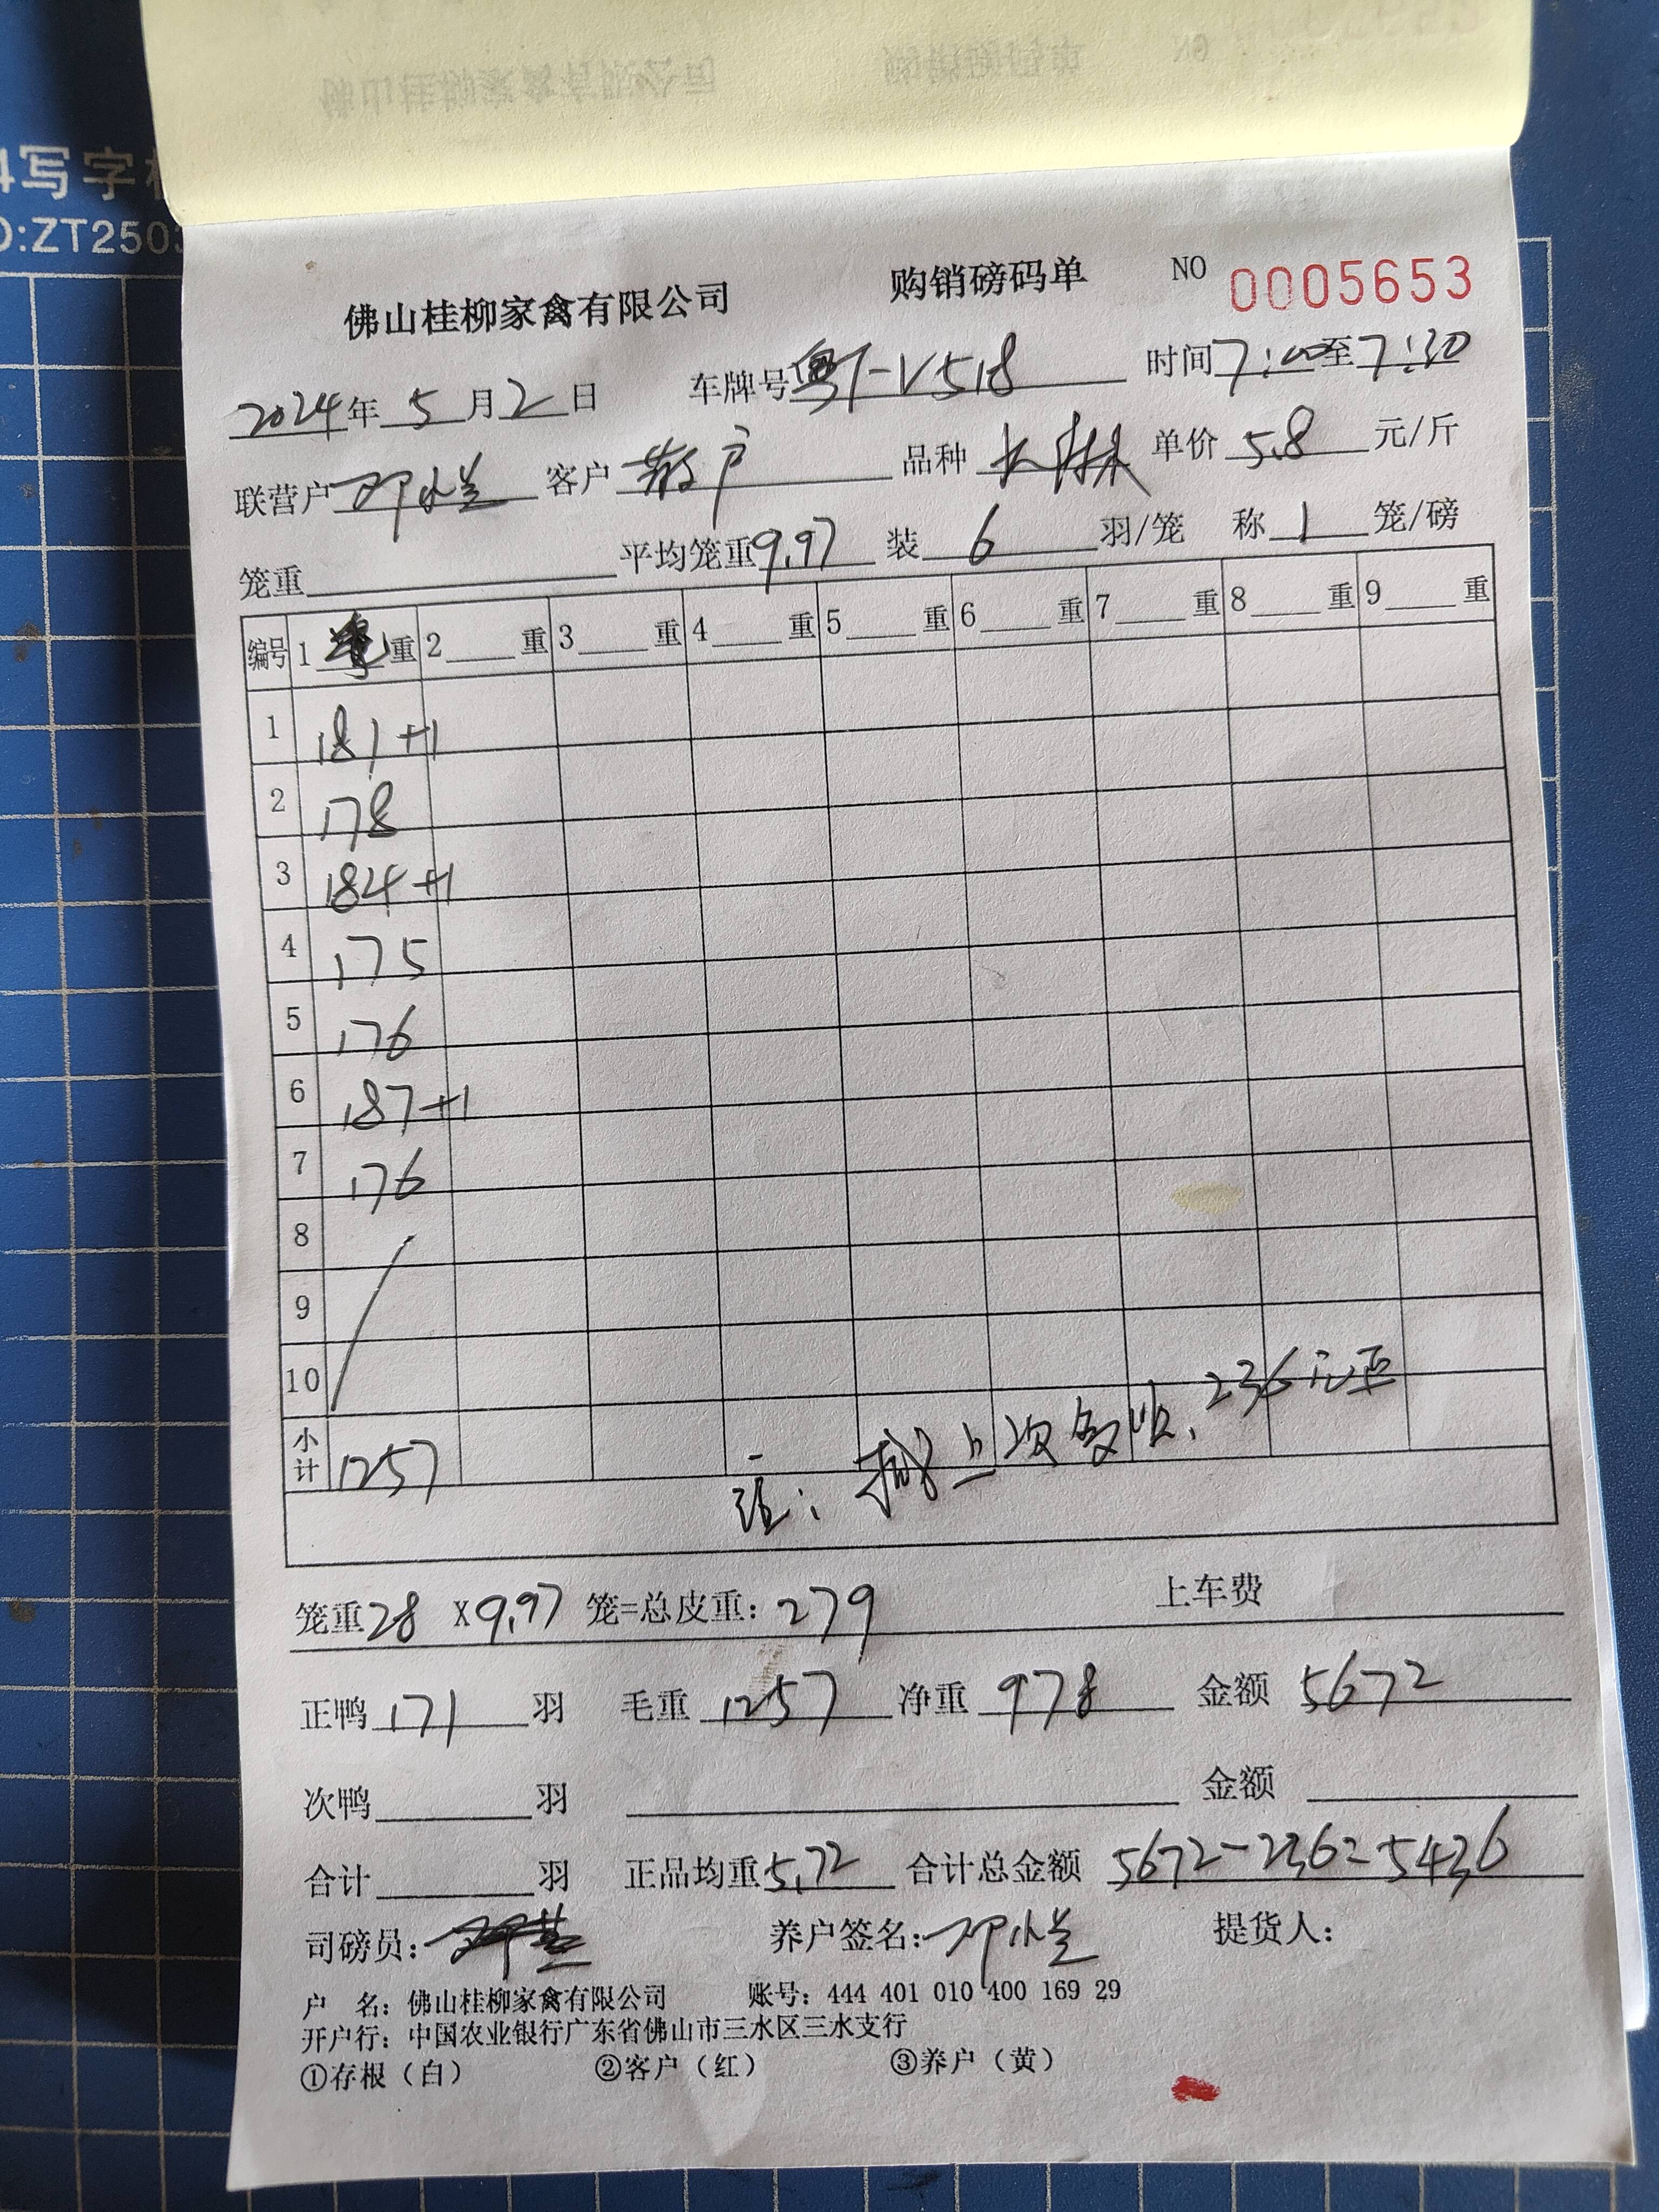 4写字
D:ZT2503
佛山桂柳家禽有限公司 购销磅码单 NO 0005653
2024年5月2日 车牌号粤T-V518 时间7:00至7:30
联营户邓小兰 客户散户 品种 单价5.8元/斤
笼重 平均笼重9.97 装6羽/笼 称1笼/磅
编号 1 重 2 重 3 重 4 重 5 重 6 重 7 重 8 重 9 重
1 181+1
2 178
3 184+1
4 175
5 176
6 187+1
7 176
8
9
10
小计 1257
注: 上次多收,236元正
笼重28 X9.97 笼=总皮重:279 上车费
正鸭171羽 毛重1257 净重978 金额5672
次鸭 羽 金额
合计 羽 正品均重5.72 合计总金额 5672-236=5436
司磅员: 养户签名:邓小兰 提货人:
户 名: 佛山桂柳家禽有限公司 账号: 444 401 010 400 169 29
开户行: 中国农业银行广东省佛山市三水区三水支行
①存根(白) ②客户(红) ③养户(黄)